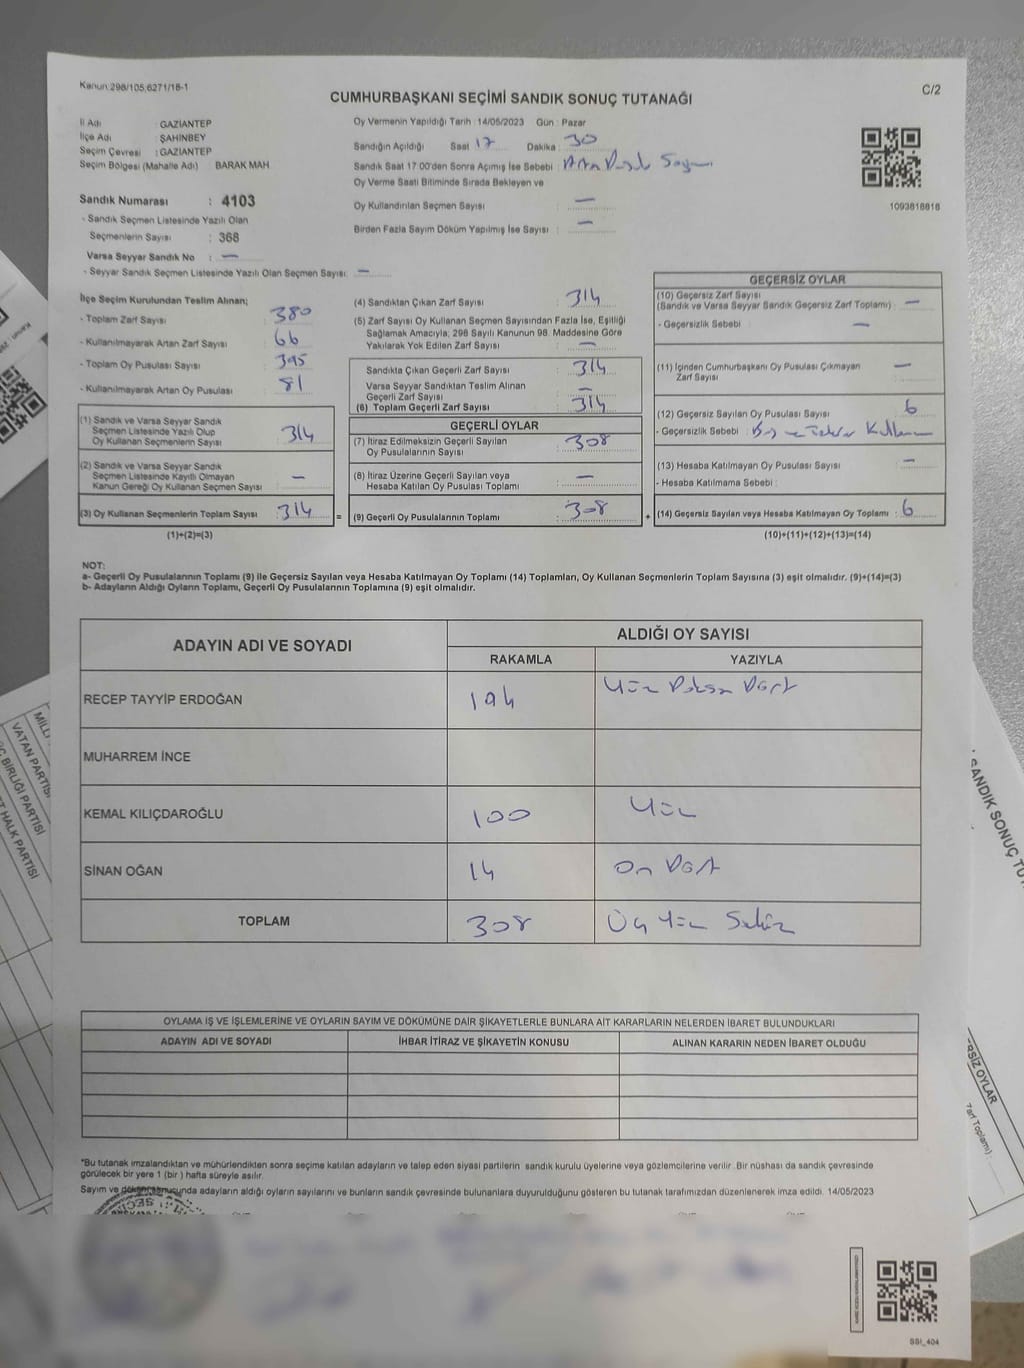 Kanun:298/105,6271/18-1
C/2
CUMHURBAŞKANI SEÇİMİ SANDIK SONUÇ TUTANAĞI
İl Adı : GAZİANTEP
İlçe Adı : ŞAHİNBEY
Seçim Çevresi : GAZİANTEP
Seçim Bölgesi (Mahalle Adı) BARAK MAH
Sandık Numarası : 4103
- Sandık Seçmen Listesinde Yazılı Olan
Seçmenlerin Sayısı : 368
Varsa Seyyar Sandık No : —
- Seyyar Sandık Seçmen Listesinde Yazılı Olan Seçmen Sayısı: —
Oy Vermenin Yapıldığı Tarih : 14/05/2023 Gün : Pazar
Sandığın Açıldığı Saat 17 Dakika : 30
Sandık Saat 17:00'den Sonra Açımış İse Sebebi :
Oy Verme Saati Bitiminde Sırada Bekleyen ve
Oy Kullandırılan Seçmen Sayısı : —
Birden Fazla Sayım Döküm Yapılmış İse Sayısı : —
1093818816
İlçe Seçim Kurulundan Teslim Alınan;
- Toplam Zarf Sayısı : 380
- Kullanılmayarak Artan Zarf Sayısı : 66
- Toplam Oy Pusulası Sayısı : 395
- Kullanılmayarak Artan Oy Pusulası : 81
(1) Sandık ve Varsa Seyyar Sandık
Seçmen Listesinde Yazılı Olup
Oy Kullanan Seçmenlerin Sayısı : 314
(2) Sandık ve Varsa Seyyar Sandık
Seçmen Listesinde Kayıtlı Olmayan
Kanun Gereği Oy Kullanan Seçmen Sayısı : —
(3) Oy Kullanan Seçmenlerin Toplam Sayısı : 314
(1)+(2)=(3)
(4) Sandıktan Çıkan Zarf Sayısı : 314
(5) Zarf Sayısı Oy Kullanan Seçmen Sayısından Fazla İse, Eşitliği
Sağlamak Amacıyla; 298 Sayılı Kanunun 98. Maddesine Göre
Yakılarak Yok Edilen Zarf Sayısı : —
Sandıkta Çıkan Geçerli Zarf Sayısı : 314
Varsa Seyyar Sandıktan Teslim Alınan
Geçerli Zarf Sayısı : —
(6) Toplam Geçerli Zarf Sayısı : 314
GEÇERLİ OYLAR
(7) İtiraz Edilmeksizin Geçerli Sayılan
Oy Pusulalarının Sayısı : 308
(8) İtiraz Üzerine Geçerli Sayılan veya
Hesaba Katılan Oy Pusulası Toplamı : —
= (9) Geçerli Oy Pusulalarının Toplamı : 308
GEÇERSİZ OYLAR
(10) Geçersiz Zarf Sayısı
(Sandık ve Varsa Seyyar Sandık Geçersiz Zarf Toplamı) : —
- Geçersizlik Sebebi : —
(11) İçinden Cumhurbaşkanı Oy Pusulası Çıkmayan
Zarf Sayısı : —
(12) Geçersiz Sayılan Oy Pusulası Sayısı : 6
- Geçersizlik Sebebi : Boş ve Tekrar Kullanım
(13) Hesaba Katılmayan Oy Pusulası Sayısı : —
- Hesaba Katılmama Sebebi :
+ (14) Geçersiz Sayılan veya Hesaba Katılmayan Oy Toplamı : 6
(10)+(11)+(12)+(13)=(14)
NOT:
a- Geçerli Oy Pusulalarının Toplamı (9) ile Geçersiz Sayılan veya Hesaba Katılmayan Oy Toplamı (14) Toplamları, Oy Kullanan Seçmenlerin Toplam Sayısına (3) eşit olmalıdır. (9)+(14)=(3)
b- Adayların Aldığı Oyların Toplamı, Geçerli Oy Pusulalarının Toplamına (9) eşit olmalıdır.
ADAYIN ADI VE SOYADI
ALDIĞI OY SAYISI
RAKAMLA YAZIYLA
RECEP TAYYİP ERDOĞAN 194 Yüz Doksan Dört
MUHARREM İNCE
KEMAL KILIÇDAROĞLU 100 Yüz
SİNAN OĞAN 14 On Dört
TOPLAM 308 Üç Yüz Sekiz
OYLAMA İŞ VE İŞLEMLERİNE VE OYLARIN SAYIM VE DÖKÜMÜNE DAİR ŞİKAYETLERLE BUNLARA AİT KARARLARIN NELERDEN İBARET BULUNDUKLARI
ADAYIN ADI VE SOYADI İHBAR İTİRAZ VE ŞİKAYETİN KONUSU ALINAN KARARIN NEDEN İBARET OLDUĞU
*Bu tutanak imzalandıktan ve mühürlendikten sonra seçime katılan adayların ve talep eden siyasi partilerin sandık kurulu üyelerine veya gözlemcilerine verilir. Bir nüshası da sandık çevresinde
görülecek bir yere 1 (bir ) hafta süreyle asılır.
Sayım ve döküm sonucunda adayların aldığı oyların sayılarını ve bunların sandık çevresinde bulunanlara duyurulduğunu gösteren bu tutanak tarafımızdan düzenlenerek imza edildi. 14/05/2023
SSI_404
VATAN PARTİSİ
BİRLİĞİ PARTİSİ
HALK PARTİSİ
SANDIK SONUÇ
OYLAR
Zarf Toplamı)